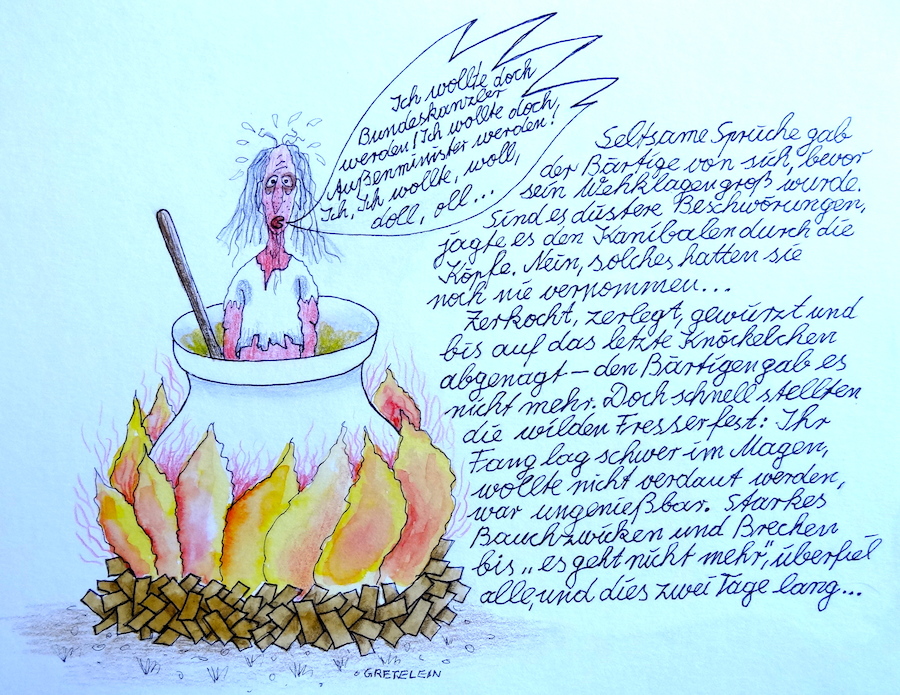 Ich wollte doch
Bundeskanzler
werden! Ich wollte doch,
Außenminister werden!
Ich, Ich wollte, woll,
doll, oll...
Seltsame Sprüche gab
der Bärtige von sich, bevor
sein Wehklagen groß wurde.
Sind es düstere Beschwörungen,
jagte es den Kanibalen durch die
Köpfe. Nein, solches hatten sie
noch nie vernommen...
Zerkocht, zerlegt, gewürzt und
bis auf das letzte Knöckelchen
abgenagt – den Bärtigen gab es
nicht mehr. Doch schnell stellten
die wilden Fresser fest: Ihr
Fang lag schwer im Magen,
wollte nicht verdaut werden,
war ungenießbar. Starkes
Bauchzwicken und Brechen
bis „es geht nicht mehr", überfiel
alle, und dies zwei Tage lang...
GRETELEIN